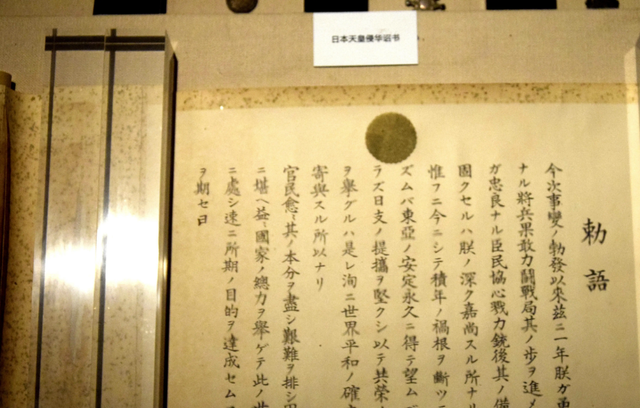 日本天皇侵华诏书
勅語
今次事變ノ勃發以來茲ニ一年朕ガ勇
ナル將兵果敢力鬪戰局其ノ歩ヲ進メ
ガ忠良ナル臣民協心戮力銃後其ノ備
固クセルハ朕ノ深ク嘉尚スル所ナリ
惟フニ今ニシテ積年ノ禍根ヲ斷ツニ
ズムバ東亞ノ安定永久ニ得テ望ムベ
ラズ日支ノ提攜ヲ堅クシ以テ共榮ノ
ヲ擧グルハ是レ洵ニ世界平和ノ確立
寄與スル所以ナリ
官民愈〻其ノ本分ヲ盡シ艱難ヲ排シ困
ニ堪ヘ益〻國家ノ總力ヲ擧ゲテ此ノ世
ニ處シ速ニ所期ノ目的ヲ達成セムコ
ヲ期セヨ